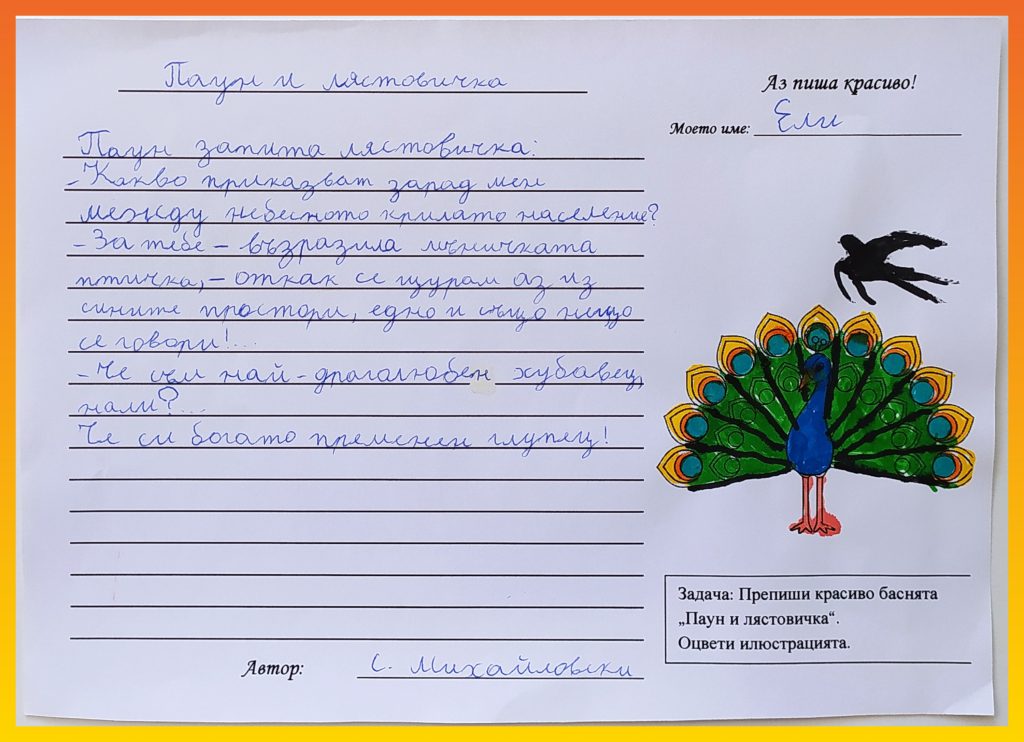 Паун и лястовичка
Аз пиша красиво!
Моето име: Ели
Паун запита лястовичка:
- Какво приказват зарад мен
между небесното крилато население?
- За тебе - възразила мъничката
птичка, - откак се щурам аз из
сините простори, едно и също нещо
се говори!...
- Че съм най - драголюбен хубавец,
нали?...
Че си богато пременен глупец!
Автор: С. Михайловски
Задача: Препиши красиво баснята
„Паун и лястовичка“.
Оцвети илюстрацията.